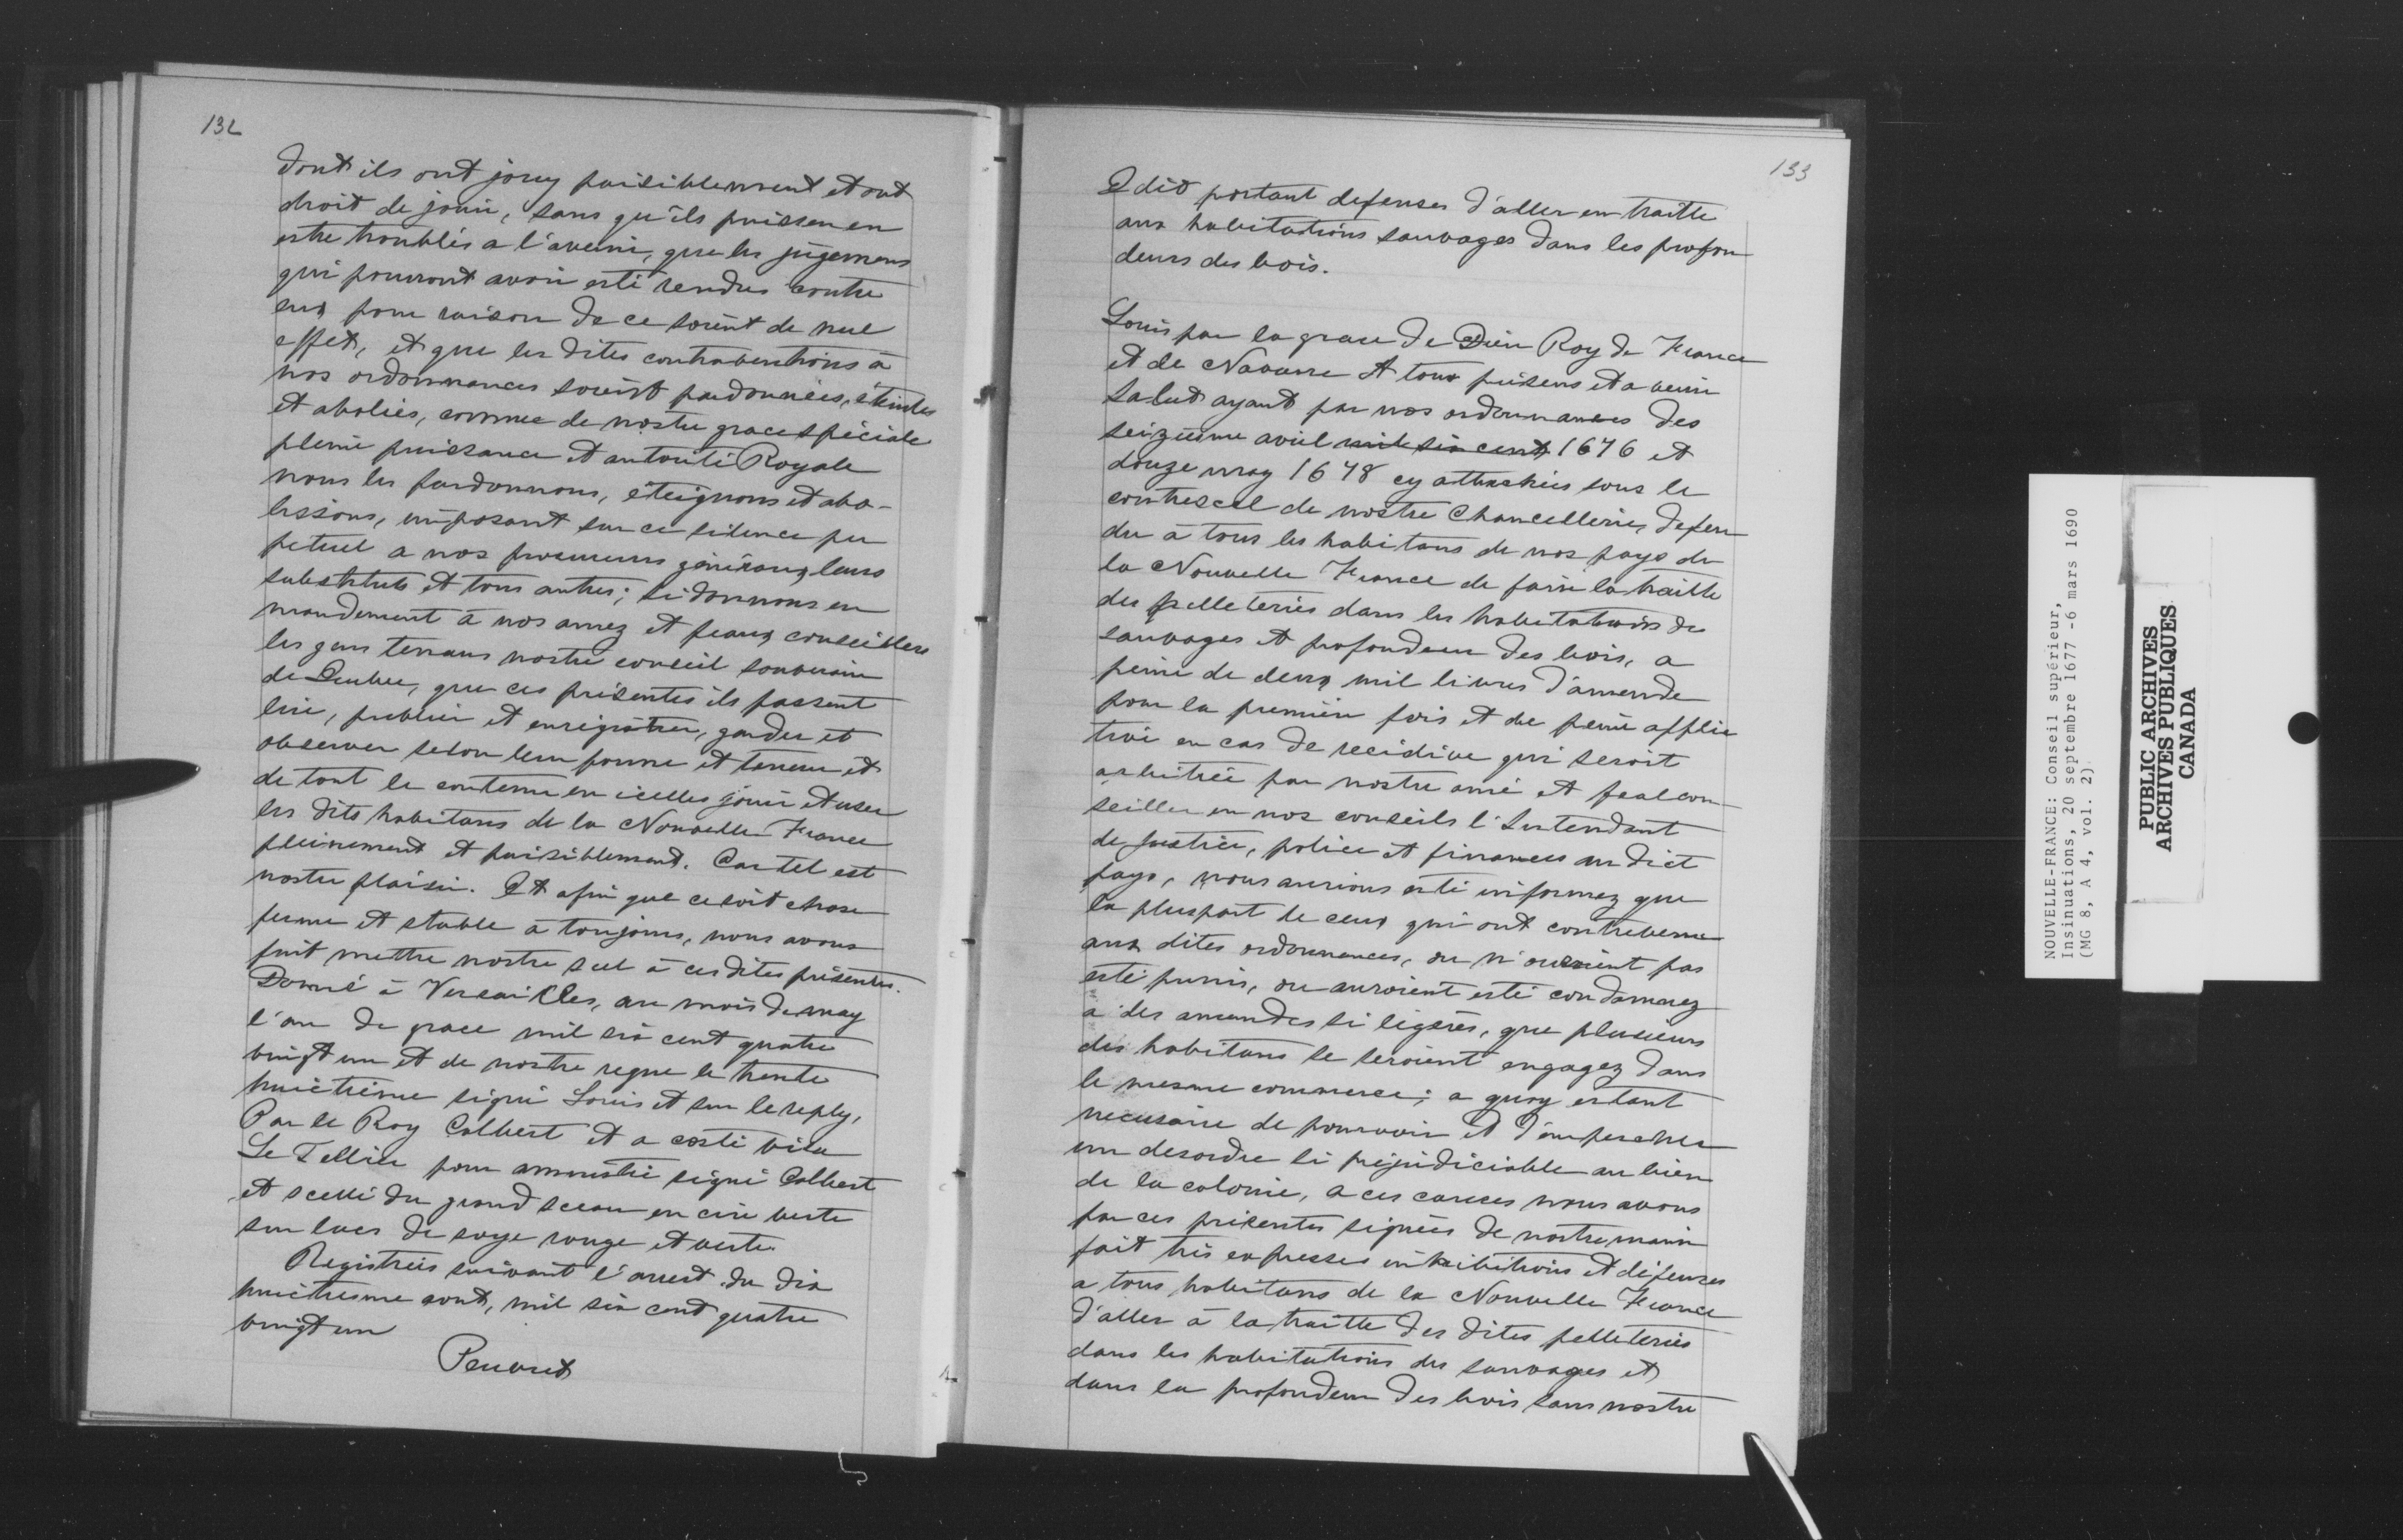 132
dont ils ont jouy paisiblement et ont
droit de jouir, sans qu'ils puissen en
estre troublés a l'avenir, que les jugemens
qui pourront avoir esté rendus contre
eux pour raison de ce soient de nul
effet, et que les dites contraventions à
nos ordonnances soient pardonnées, éteintes
et abolies, comme de nostre grace spéciale
pleine puissance et autorité Royale
nous les pardonnons, éteignons et abo-
lissons, imposant sur ce silence per
petuel a nos procureurs généraux, leurs
substituts et tous autres; si donnons en
mandement à nos amez et feaux conseillers
les gens tenans nostre conseil souverain
de Quebec, que ces présentes ils fassent
lire, publier et enregistrer, garder et
observer selon leur forme et teneur et
de tout le contenu en icelles jouir et user
les dits habitans de la Nouvelle France
pleinement et paisiblement. Car tel est
nostre plaisir. Et afin que ce soit chose
ferme et stable à toujours, nous avons
fait mettre nostre scel à ces dites présentes.
Donné à Versailles, au mois de may
l'an de grace mil six cent quatre
vingt un et de nostre regne le trente
huictième signé Louis et sur le reply,
Par le Roy Colbert et a costé visa
Le Tellier pour amnistie signé Colbert
et scellé du grand sceau en cire verte
sur lacs de soye rouge et verte.
Registrées suivant l'arrest du dix
huictiesme aout, mil six cent quatre
vingt un
Peuvret
133
Edit portant defenses d'aller en traitte
aux habitations sauvages dans les profon
deurs des bois.
Louis par la grace de Dieu Roy de France
et de Navarre A tous présens et a venir
Salut ayant par nos ordonnances des
seizieme avril mil six cent 1676 et
douze may 1678 cy attachées sous le
contrescel de nostre Chancellerie, defen
du à tous les habitans de nos pays de
la Nouvelle France de faire la traitte
des pelleteries dans les habitations des
sauvages et profondeur des bois, a
peine de deux mil livres d'amende
pour la première fois et de peine afflic
tive en cas de recidive qui seroit
arbitrée par nostre amé et feal con-
seiller en nos conseils l'Intendant
de justice, police et finances au dict
pays, nous aurions esté informez que
la pluspart de ceux qui ont contrevenu
aux dites ordonnances, ou n'auroient pas
esté punis, ou auroient esté condamnez
a des amendes si légères, que plusieurs
des habitans se seroient engagez dans
le mesme commerce; a quoy estant
necessaire de pourvoir et d'empescher
un desordre si préjudiciable au bien
de la colonie, a ces causes nous avons
par ces présentes signées de nostre main
fait très expresses inhibitions et défenses
a tous habitans de la Nouvelle France
d'aller à la traitte des dites pelleteries
dans les habitations des sauvages et
dans la profondeur des bois sans nostre
NOUVELLE-FRANCE: Conseil supérieur,
Insinuations, 20 septembre 1677 -6 mars 1690
(MG 8, A 4, vol. 2)
PUBLIC ARCHIVES
ARCHIVES PUBLIQUES
CANADA